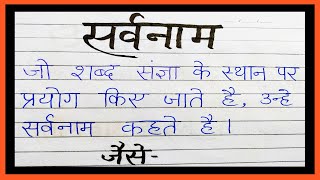 सर्वनाम
जो शब्द संज्ञा के स्थान पर
प्रयोग किए जाते है, उन्हे
सर्वनाम कहते है ।
जैसे-